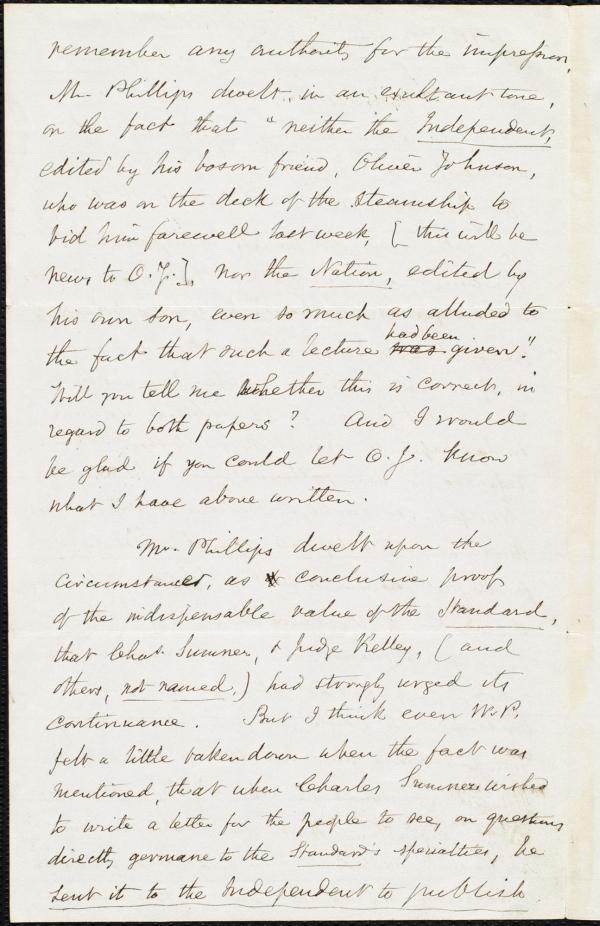 remember any authority for the impression,
Mr. Phillips dwelt, in an exultant tone,
on the fact that "neither the Independent,
edited by his bosom friend, Oliver Johnson,
who was on the deck of the steamship to
bid him farewell last week, [this will be
news to O.J.], nor the Nation, edited by
his own son, even so much as alluded to
the fact that such a lecture was had been given."
Will you tell me whether this is correct, in
regard to both papers? And I would
be glad if you could let O.J. know
what I have above written.
Mr. Phillips dwelt upon the
circumstances, as conclusive proof
of the indispensable value of the Standard,
that Chas. Sumner, & Judge Kelley, (and
others, not named,) had strongly urged its
continuance. But I think even W.P.
felt a little taken down when the fact was
mentioned, that when Charles Sumner wished
to write a letter for the people to see, on questions
directly germane to the Standard's specialties, he
sent it to the Independent to publish.